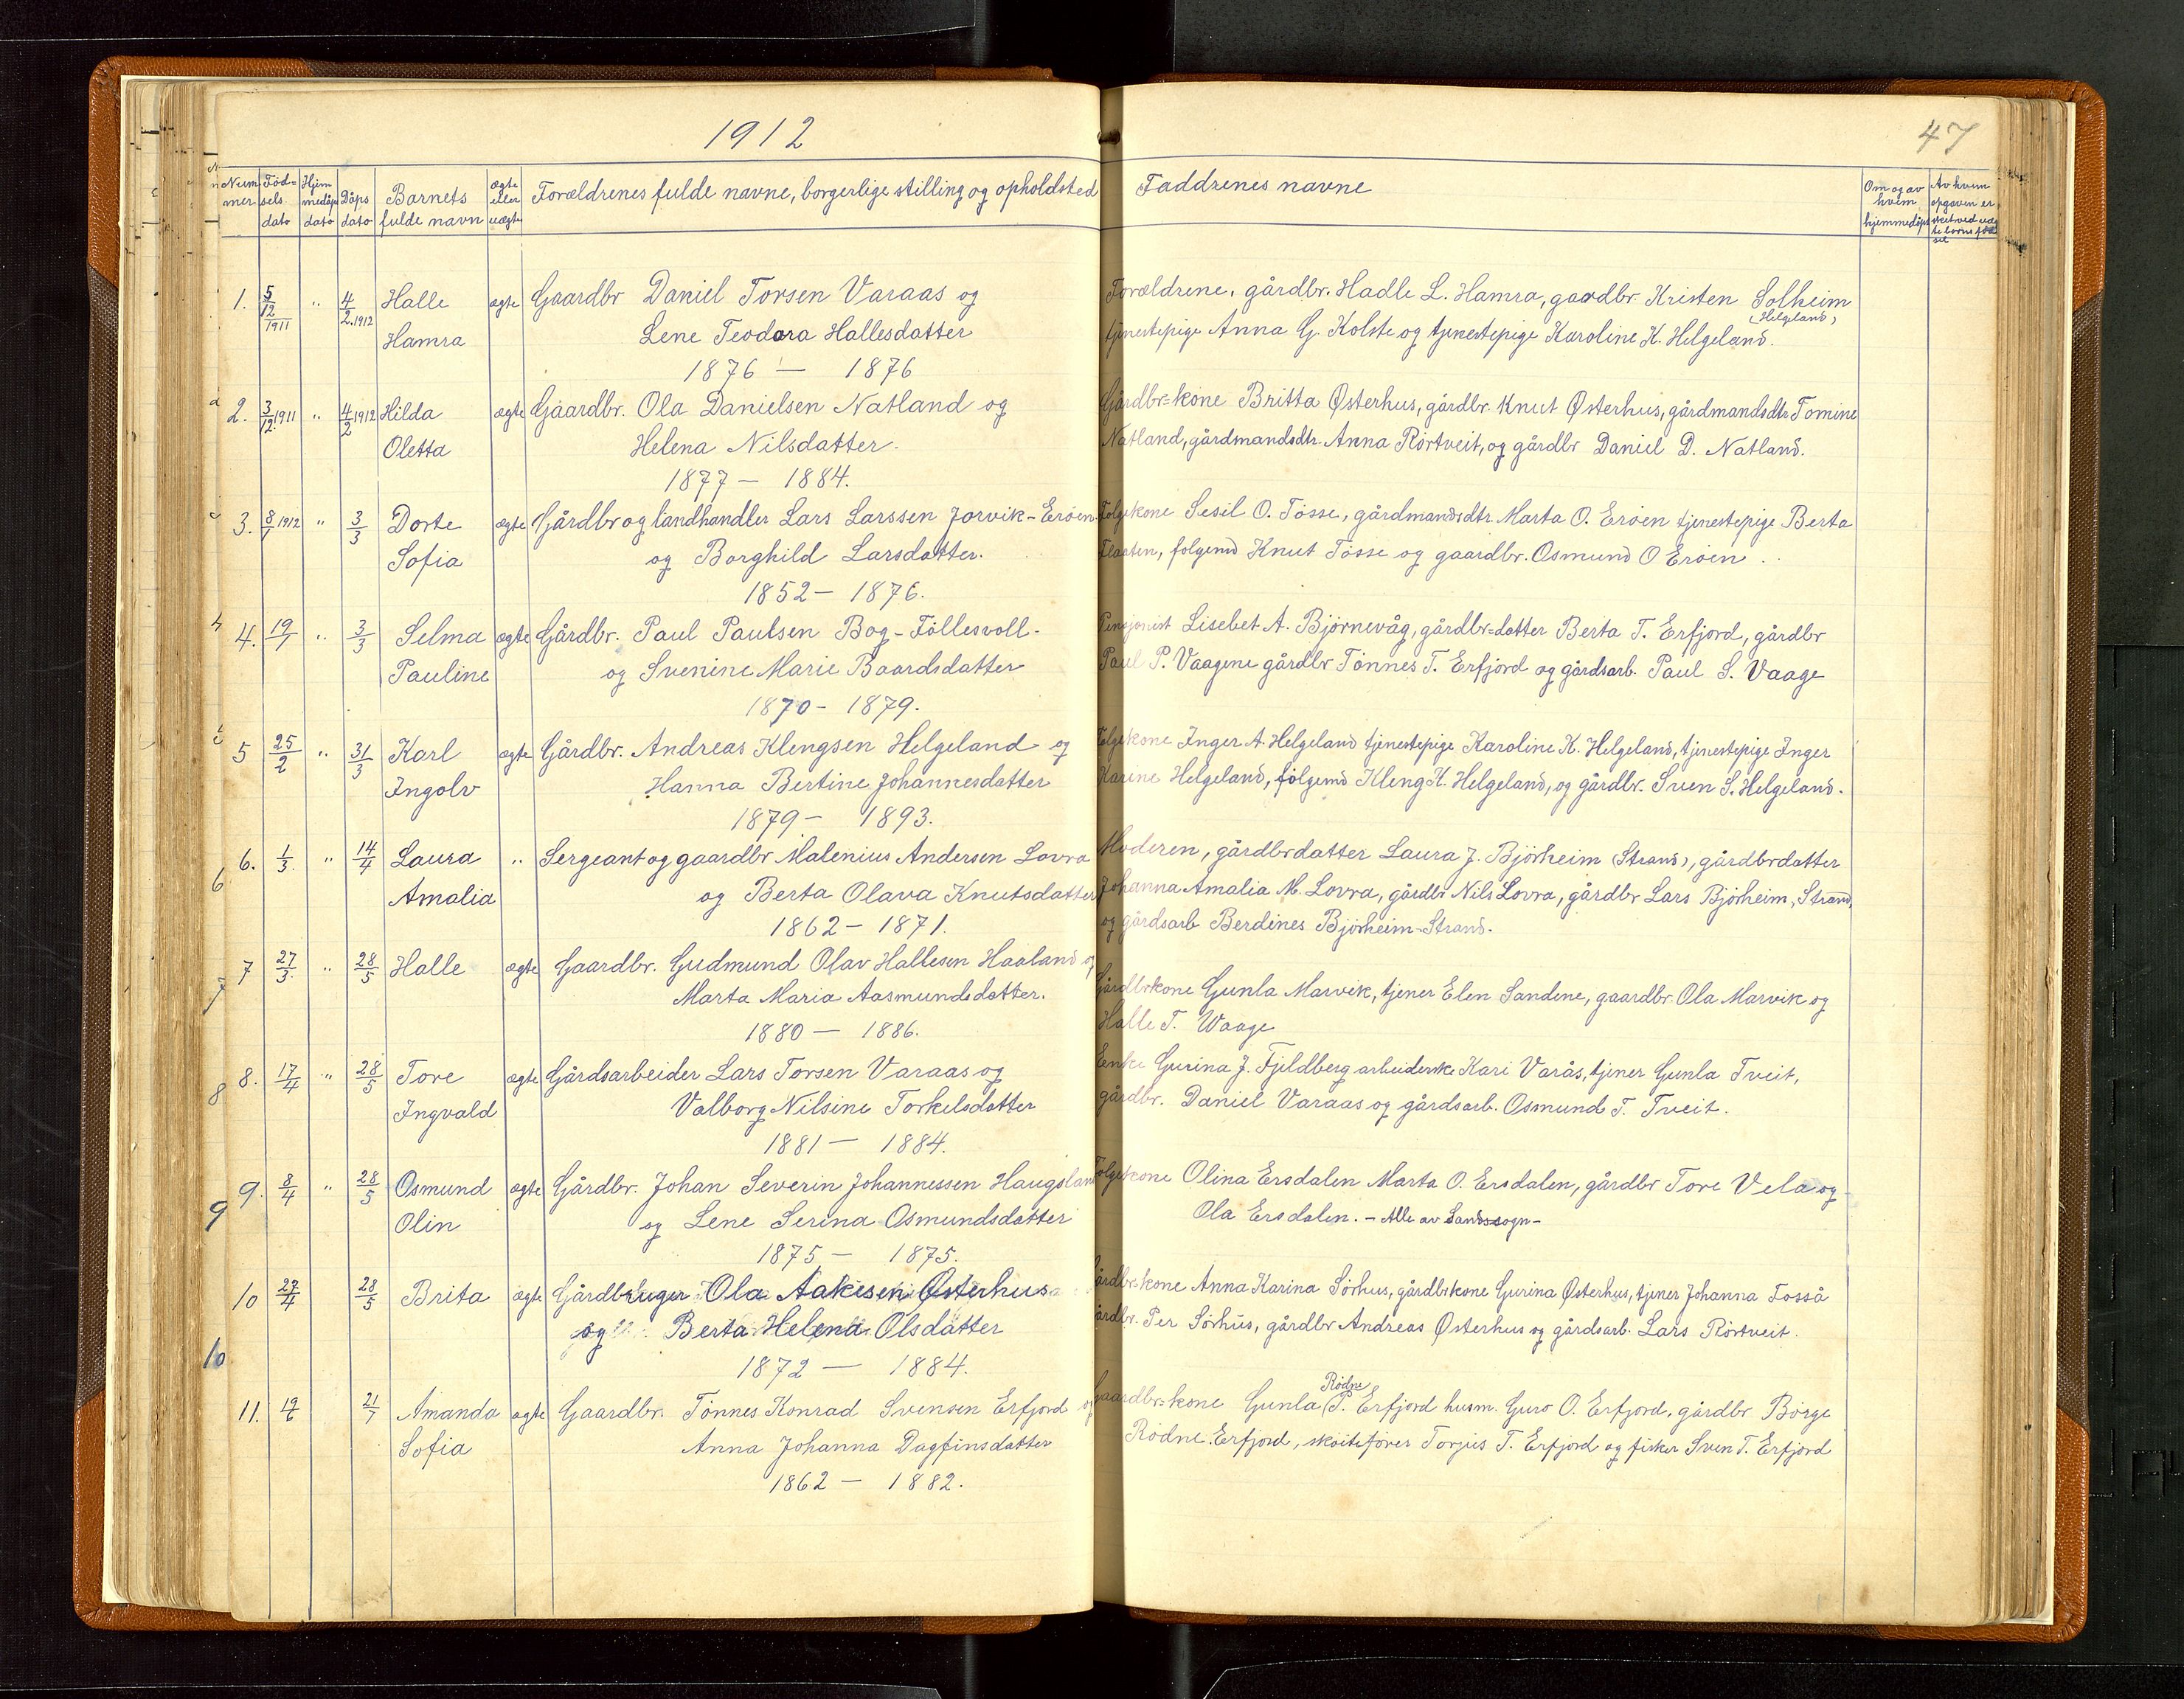 1912
47
Nummer Fødselsdato Hjemmedåpsdato Dåpsdato Barnets fulde navn ægte eller uægte Forældrenes fulde navne, borgerlige stilling og opholdsted Faddrenes navne Om og av hvem hjemmedøpt Av hvem opgaven er sket ved uægte barns fødsel
1. 5/12 1911 " 4/2.1912 Halle ægte Gaardbr Daniel Torsen Varaas og
Hamra Lene Teodora Hallesdatter
1876 — 1876
Forældrene, gårdbr. Hadle L. Hamra, gaardbr Kristen Solheim
(Helgeland)
tjenestepige Anna G. Kolste og tjenestepige Karoline K. Helgeland.
2. 3/12 1911 " 4/2 1912 Hilda ægte Gaardbr. Ola Danielsen Natland og
Oletta Helena Nilsdatter.
1877 — 1884.
Gårdbr=kone Britta Østerhus, gårdbr. Knut Østerhus, gårdmandsdtr Tomine
Natland, gårdmandsdtr. Anna Rörtveit, og gårdbr Daniel D. Natland.
3. 8/1 1912 " 3/3 Dorte ægte Gårdbr og landhandler Lars Larssen Jorvik-Eröen
Sofia og Borghild Larsdatter.
1852 — 1876.
Folgekone Sesil O. Tösse, gårdmandsdtr. Marta O. Eröen tjenestepige Berta
Flaaten, folgemd Knut Tösse og gaardbr. Osmund O Eröen.
4. 19/1 " 3/3 Selma ægte Gårdbr. Paul Paulsen Bog-Föllesvoll-
Pauline og Svenine Marie Baardsdatter
1870 - 1879.
Pensjonist Lisebet A. Björnevåg, gårdbr=datter Berta T. Erfjord, gårdbr
Paul P. Vaagene gårdbr Tönnes T. Erfjord og gårdsarb. Paul S. Vaage
5 25/2 " 31/3 Karl ægte Gårdbr. Andreas Klengsen Helgeland og
Ingolv Hanna Bertine Johannesdatter
1879 — 1893.
Folgekone Inger A. Helgeland tjenestepige Karoline K. Helgeland, tjenestepige Inger
Karine Helgeland, fölgemd Kleng K. Helgeland, og gårdbr. Sven S. Helgeland.
6. 1/3 " 14/4 Laura " Sergeant og gaardbr Malenius Andersen Lovra
Amalia og Berta Olava Knutsdatter
1862 — 1871.
Moderen, gårdbrdatter Laura J. Björheim (Strand), gårdbrdatter
Johanna Amalia M. Lovra, gårdbr Nils Lovra, gårdbr Lars Björheim, Strand,
og gårdsarb Berdines Björheim-Strand.
7 27/3 " 28/5 Halle ægte Gaardbr. Gudmund Olav Hallesen Haaland og
Marta Maria Aasmundsdatter.
1880 — 1886.
Gårdbrkone Gunla Marvik, tjener Elen Sandene, gaardbr. Ola Marvik og
Halle T. Waage
8. 17/4 " 28/5 Tore ægte Gårdsarbeider Lars Torsen Varaas og
Ingvald Valborg Nilsine Torkelsdatter
1881 — 1884.
Enke Gurina J. Fjeldberg arbeiderske Kari Varås, tjener Gunla Tveit,
gårdbr. Daniel Varaas og gårdsarb. Osmund T. Tveit.
9. 8/4 " 28/5 Osmund ægte Gårdbr. Johan Severin Johannessen Haugsland
Olin og Lene Serina Osmundsdatter
1875 — 1875.
Folgekone Olina Ersdalen Marta O. Ersdalen, gårdbr Tore Vela og
Ola Ersdalen. - Alle av Sands sogn -
10 27/4 28/5 Brita ægte Gårdbruger Ola Aakesen Østerhus
og Berta Helena Olsdatter
1872 — 1884.
Gårdbrkone Anna Karina Sörhus, gårdbrkone Gurina Østerhus, tjener Johanna Fosså
gårdbr. Per Sörhus, gårdbr Andreas Østerhus og gårdsarb. Lars Rörtveit.
11. 19/6 21/7 Amanda ægte Gaardbr. Tönnes Konrad Svensen Erfjord og
Sofia Anna Johanna Dagfinsdatter
1862 — 1882.
Rödne
Gaardbr=kone Gunla P. Erfjord husm. Guro O. Erfjord, gårdbr Börge
Rödne Erfjord, sköiteförer Torjus T. Erfjord og fisker Sven T. Erfjord